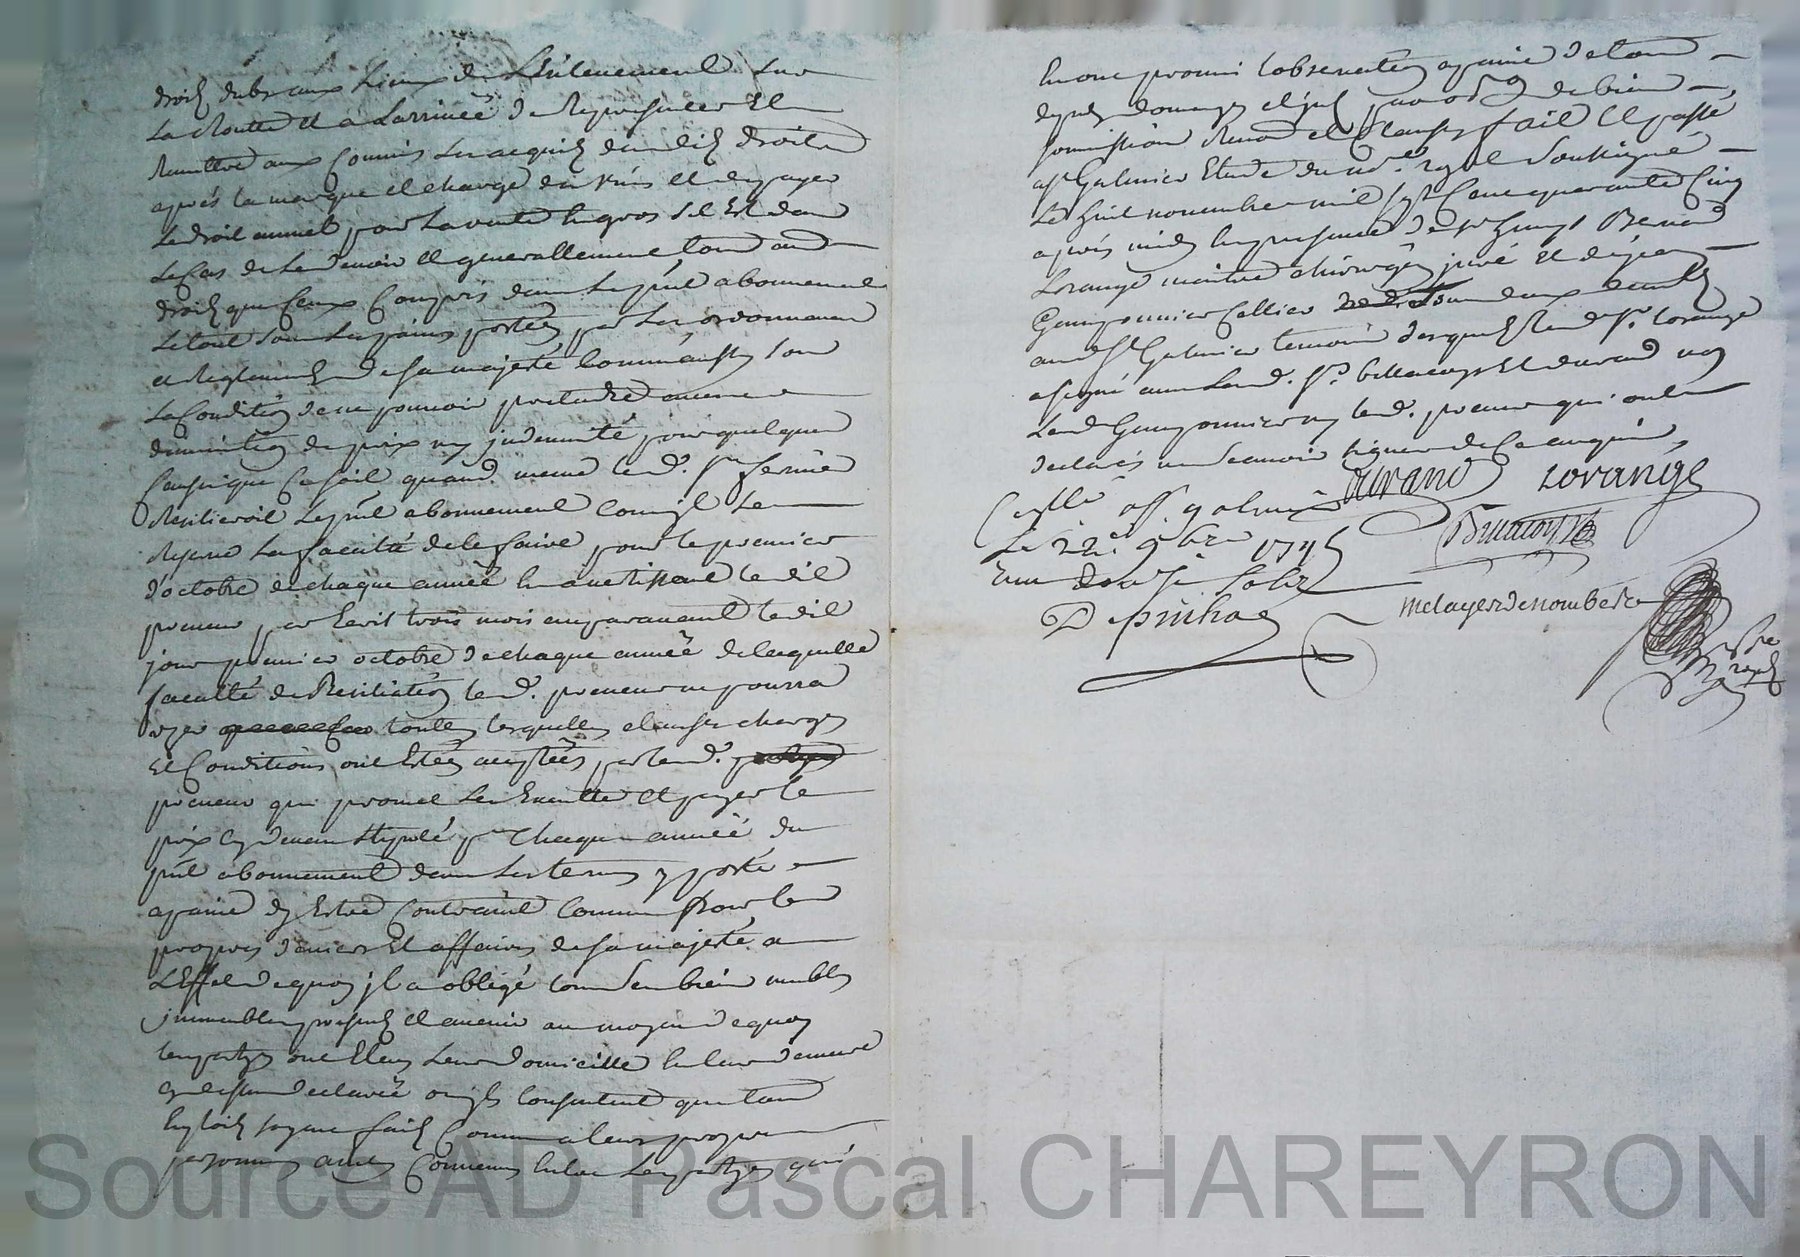 droits dubs aux lieux de L'enlevement sur
La Routte et a Larrivée de Representer et
Remettre aux Commis Les acquits desdits droits
après la marque et charge des vins et de payer
Le droit annuel pour La vente en gros s'il est dans
Le Cas de Le devoir et generallement tous autres
droits que Ceux Compris dans Le pnt abonnement
Le tout sous Les peines portées par Les ordonnances
et Reglements de sa majesté Comm aussy sous
La Condition de ne pouvoir pretendre aucune
diminution de prix ny indemnité pour quelque
Cause que Ce soit quand meme led. Sr fermier
Resilieroit Le pnt abonnement Comm il se
Reserve La faculté de le faire pour le premier
d'octobre de chaque année En avertissant le dit
preneur par Ecrit trois mois auparavant le dit
jour premier octobre de chaque année de laquelle
faculté de Resiliation led. preneur ne pourra
user toutes lesquelles clauses charges
Et Conditions ont Estées acceptées par led.
preneur qui promet Les Executter et payer le
prix cy devant stipulé pr Chaque année du
pnt abonnement dans Les termes y portés
a peine dy Estre Contraint Comme Pour les
propres deniers Et affaires de sa majesté a
L'Effet de quoy il a obligé tous ses biens meubles
immeubles presents et avenir au moyen de quoy
les partyes ont Eleu Leur domicille En leur demeure
cy dessus declarée ou ils Consentent que tous
Exploits soyent faits Comme a leurs propres
personnes ainsy Convenu Entre Les partyes qui
En ont promis l'observation a peine de tous
depens domages et jnts par obon de biens
soumission Renon et Clauses fait et passé
a St Galmier Etude du no.re royal soussigné
Le huit novembre mil sept Cent quarante Cinq
après midy En presence de Sr Benoit
Lorange maitre chirurgien juré Et de
Guyonnier Cellier tous deux
aud. St Galmier temoins desquels led. Sr. Lorange
a signé avec Lesd. Sr. Et durand non
Led. Guyonnier ny led. preneur qui ont
declarés ne sçavoir signer de Ce enquis
durand Lorange
Cellé a St galmier
Le 22e 9bre 1745
Reçu douze sols
Depinhac
metayer denombre
Source AD Pascal CHAREYRON